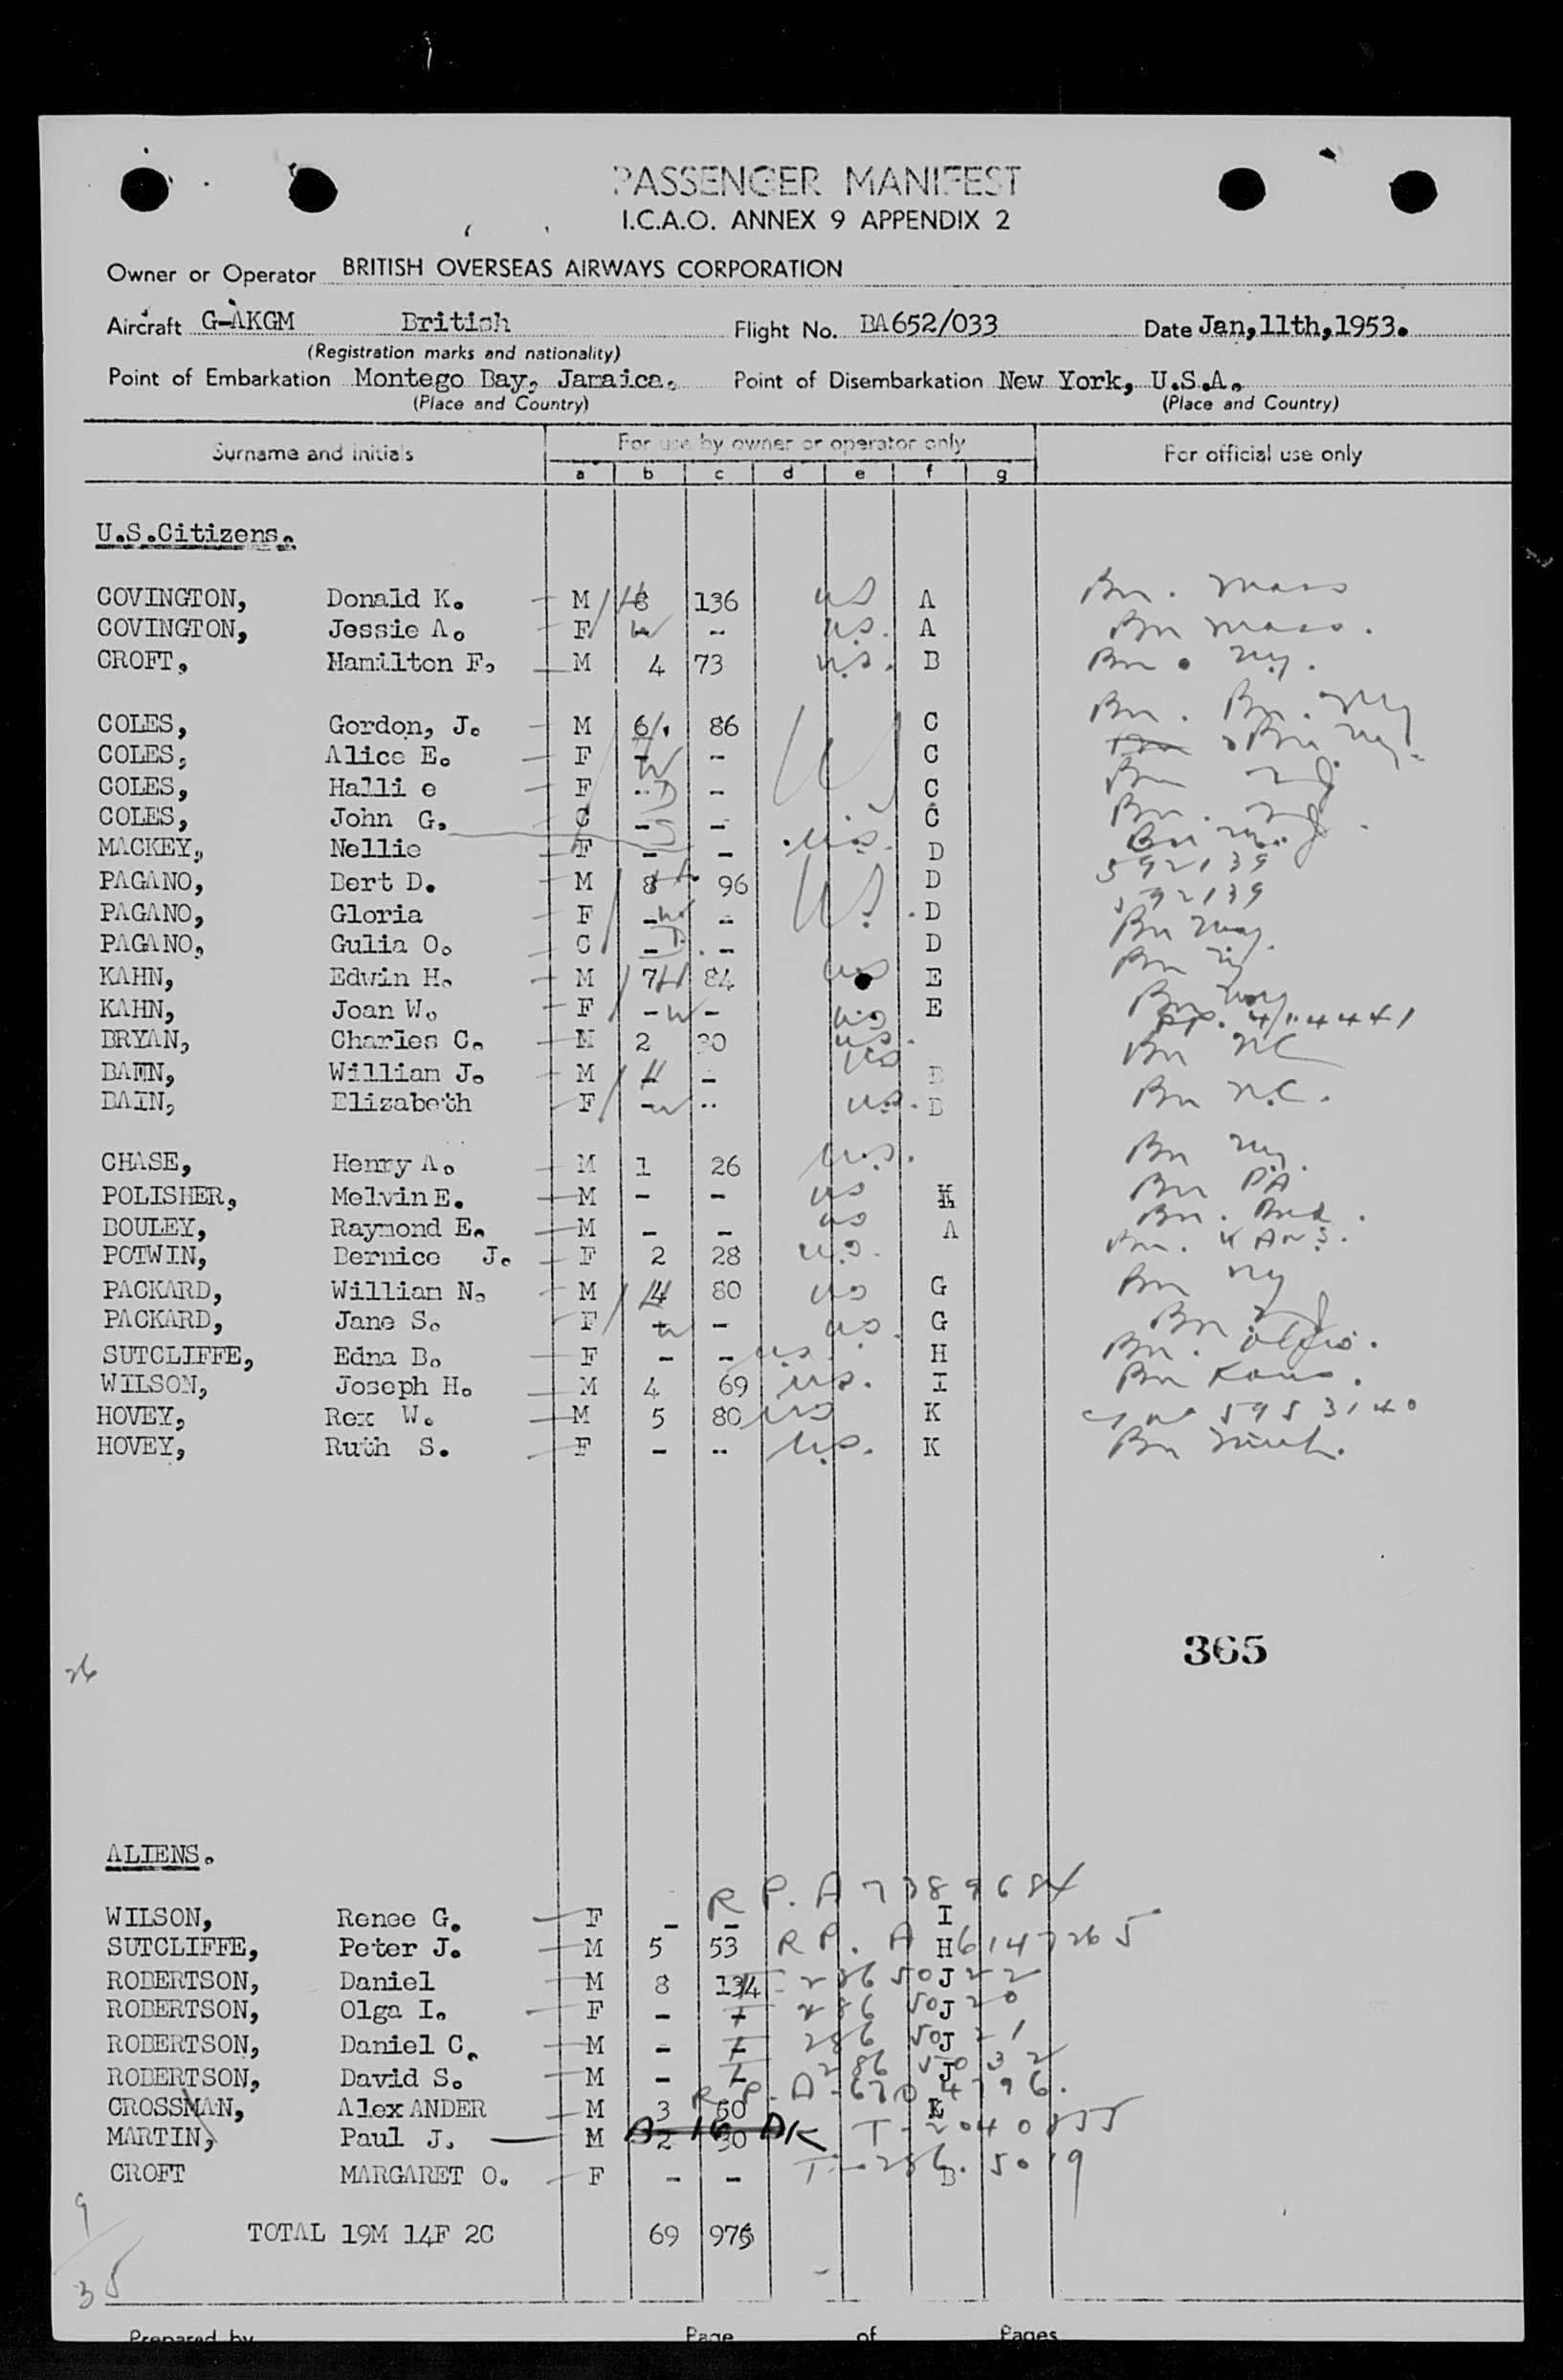 PASSENGER MANIFEST
I.C.A.O. ANNEX 9 APPENDIX 2
Owner or Operator BRITISH OVERSEAS AIRWAYS CORPORATION
Aircraft G-AKGM British Flight No. BA652/033 Date Jan,11th,1953.
(Registration marks and nationality)
Point of Embarkation Montego Bay, Jamaica. Point of Disembarkation New York, U.S.A.
(Place and Country) (Place and Country)
Surname and initials For use by owner or operator only For official use only
a b c d e f g
U.S.Citizens.
COVINGTON, Donald K. M H 8 136 US A Bn. Mass
COVINGTON, Jessie A. F W - - U.S. A Bn Mass.
CROFT, Hamilton F. M 4 73 U.S. B Bn. N.Y.
COLES, Gordon, J. M 6 86 US C Bn. Bn. NY
COLES, Alice E. F - W - C Bn NY.
COLES, Halli e F - D - C Bn NJ
COLES, John G. C - S - C Bn. NJ.
MACKEY, Nellie F - - U.S. D Bn
PAGANO, Bert D. M 8 H 96 US D 592139
PAGANO, Gloria F - W - D 592139
PAGANO, Gulia O. C - D - D Bn NY.
KAHN, Edwin H. M 7 H 84 US E Bn NY
KAHN, Joan W. F - W - US E Bn NY
BRYAN, Charles C. M 2 30 US. PP.
BAIN, William J. M H - - US D Bn NC
BAIN, Elizabeth F - W - U.S. D Bn N.C.
CHASE, Henry A. M 1 26 U.S. Bn NY.
POLISHER, Melvin E. M - - US K Bn PA
BOULEY, Raymond E. M - - US A Bn.
POTWIN, Bernice J. F 2 28 U.S. Bn. KANS.
PACKARD, William N. M H 4 80 US G Bn NY
PACKARD, Jane S. F - W - US. G Bn NJ
SUTCLIFFE, Edna B. F - - U.S. H Bn. Ohio.
WILSON, Joseph H. M 4 69 US. I Bn Kans.
HOVEY, Rex W. M 5 80 US K 5953140
HOVEY, Ruth S. F - - U.S. K Bn Mich.
365
26
ALIENS.
R P. A 7389684
WILSON, Renee G. F - - I
SUTCLIFFE, Peter J. M 5 53 H R P. A 6147265
ROBERTSON, Daniel M 8 134 J T-286 5022
ROBERTSON, Olga I. F - - J T 286 5020
ROBERTSON, Daniel C. M - - J T 286 5021
ROBERTSON, David S. M - - J T 286 5032
R. P. A-6704796.
CROSSMAN, AlexANDER M 3 50 K
MARTIN, Paul J. M 2 30 T-2040855
CROFT MARGARET O. F - - B T-286.5019
9
TOTAL 19M 14F 2C 69 976
35
Prepared by Page of Pages